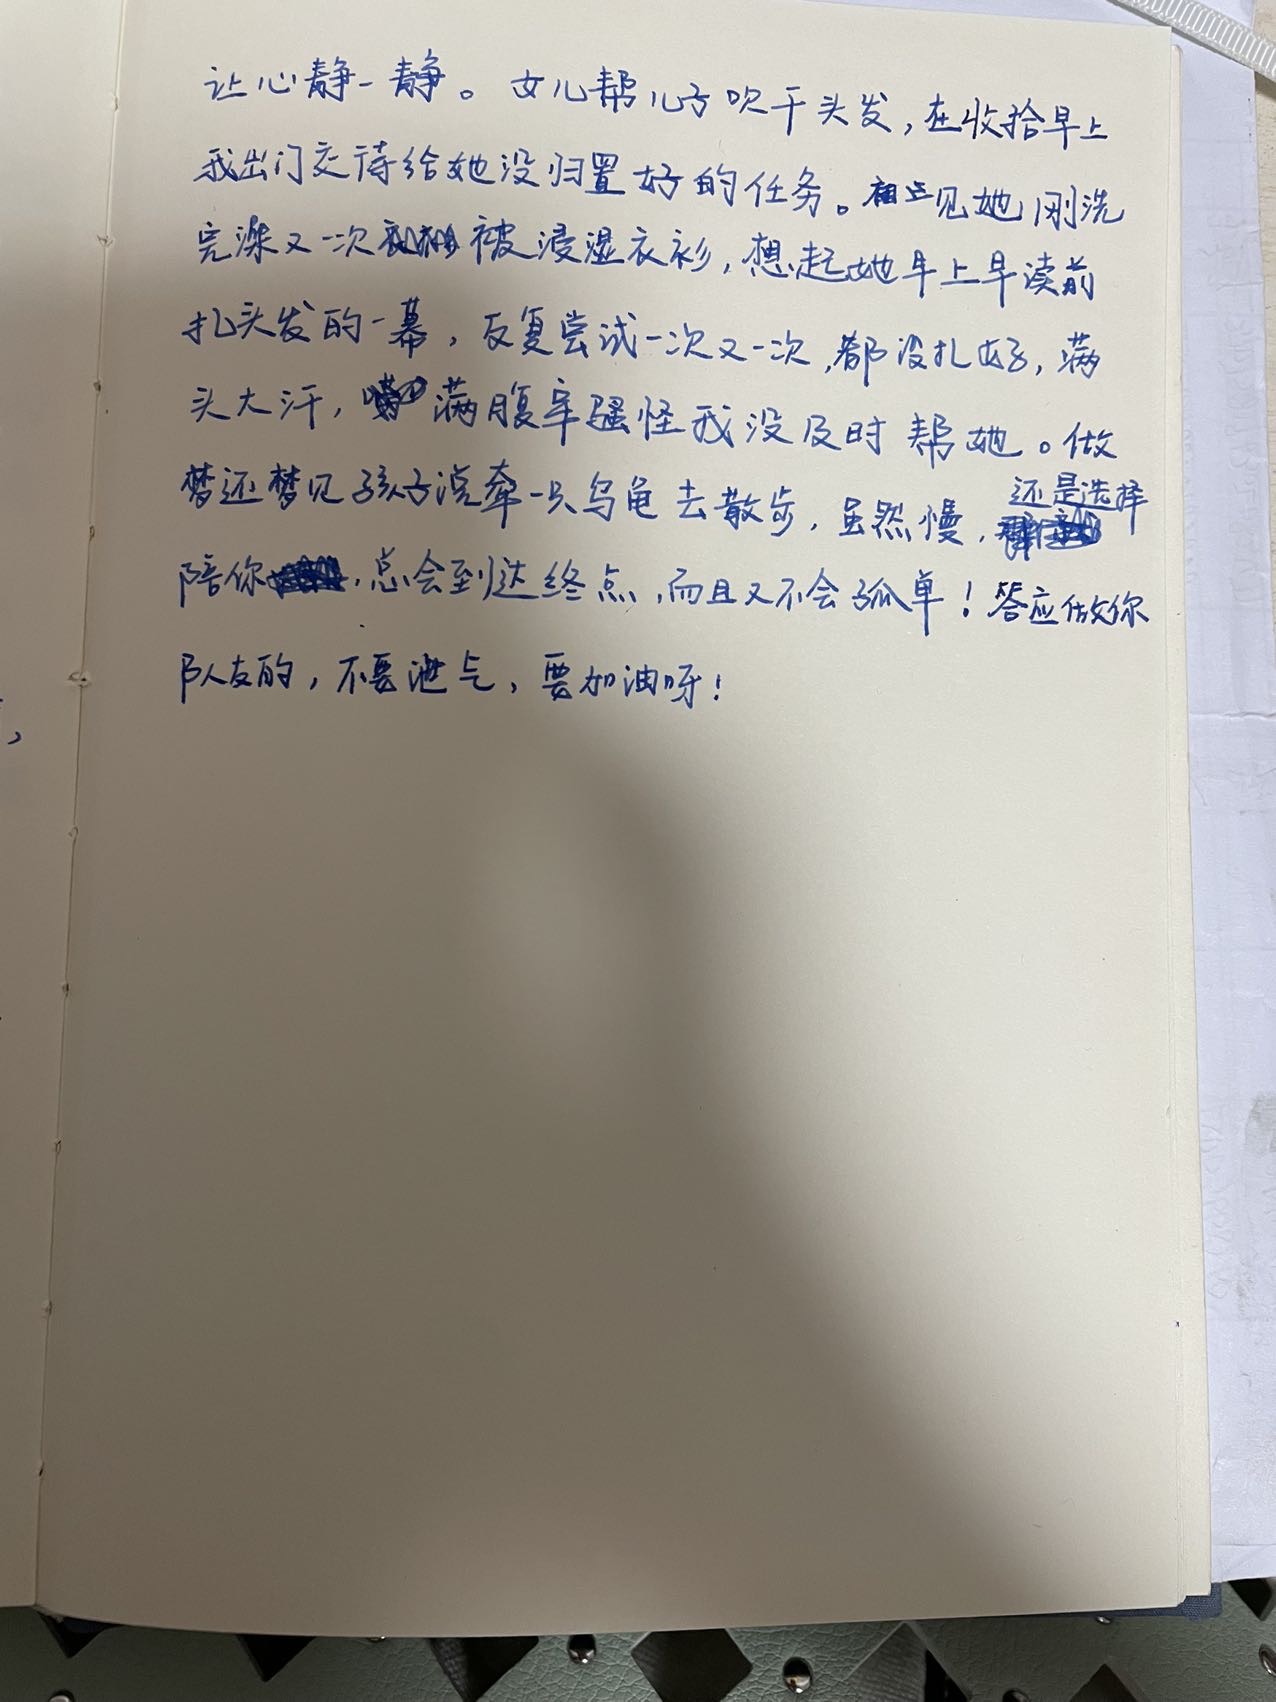 让心静一静。女儿帮儿子吹干头发，在收拾早上
我出门交待给她没归置好的任务。见她刚洗
完澡又一次被浸湿衣衫，想起她早上早读前
扎头发的一幕，反复尝试一次又一次，都没扎好，满
头大汗，满腹牢骚怪我没及时帮她。做
梦还梦见孩子说牵一只乌龟去散步，虽然慢，还是选择
陪你，总会到达终点，而且又不会孤单！答应做你
队友的，不要泄气，要加油呀！